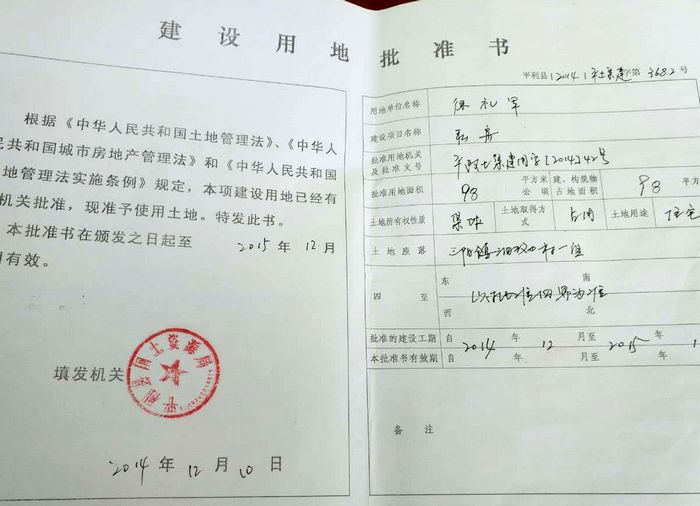 建设用地批准书
根据《中华人民共和国土地管理法》、《中华人
民共和国城市房地产管理法》和《中华人民共和国
地管理法实施条例》规定，本项建设用地已经有
机关批准，现准予使用土地。特发此书。
本批准书在颁发之日起至 2015 年 12 月
有效。
填发机关
平利县国土资源局
2014 年 12 月 10 日
平利县(2014)平土集建字第3682号
用地单位名称 徐礼军
建设项目名称
批准用地机关及批准文号 平政土集建用字[2014]42号
批准用地面积 98 平方米 公顷 建、构筑物占地面积 98 平方
土地所有权性质 集体 土地取得方式 占用 土地用途 住宅
土地座落 三阳镇 村一组
四至 东 南 西 北
以批准四界为准
批准的建设工期 自 2014 年 12 月至 2015 年 1
本批准书有效期 自 年 月至 年
备注